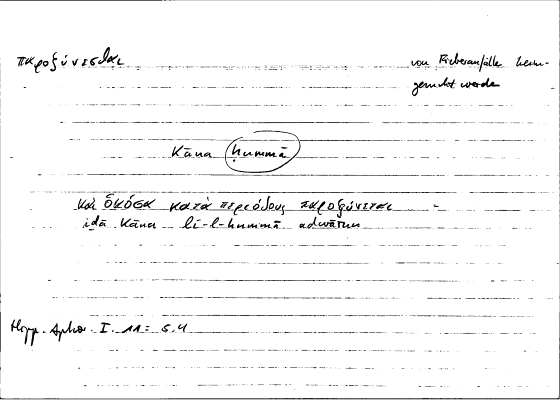 παροξύνεσθαι
von Fieberanfälle heim-
gesucht werden
kāna ḥummā
καὶ ὁκόσα κατὰ περιόδους παροξύνεται -
iḏā kāna li-l-ḥummā adwārun
Hipp. Aphor. I. 11 = 5.4